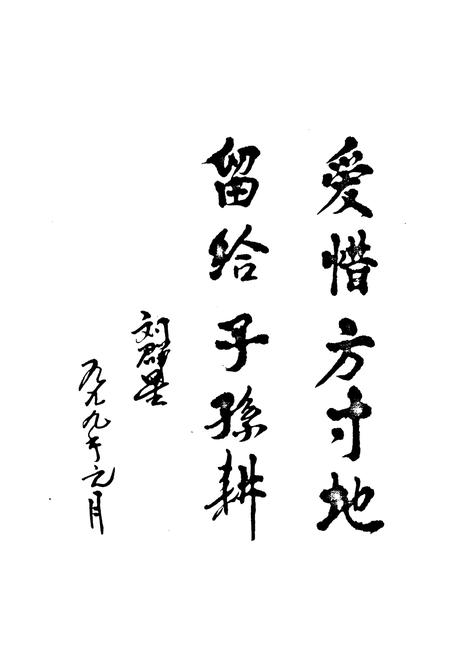 愛惜方寸地
留给子孫耕
刘群星
一九九九年元月